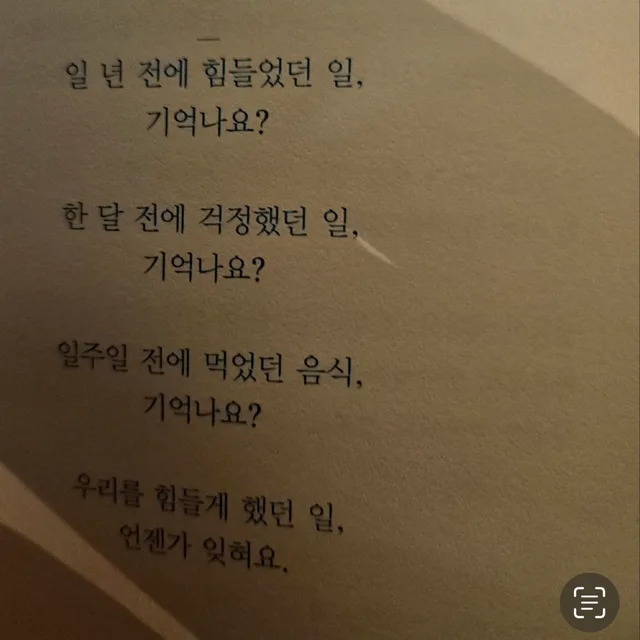 일 년 전에 힘들었던 일,
기억나요?
한 달 전에 걱정했던 일,
기억나요?
일주일 전에 먹었던 음식,
기억나요?
우리를 힘들게 했던 일,
언젠가 잊혀요.